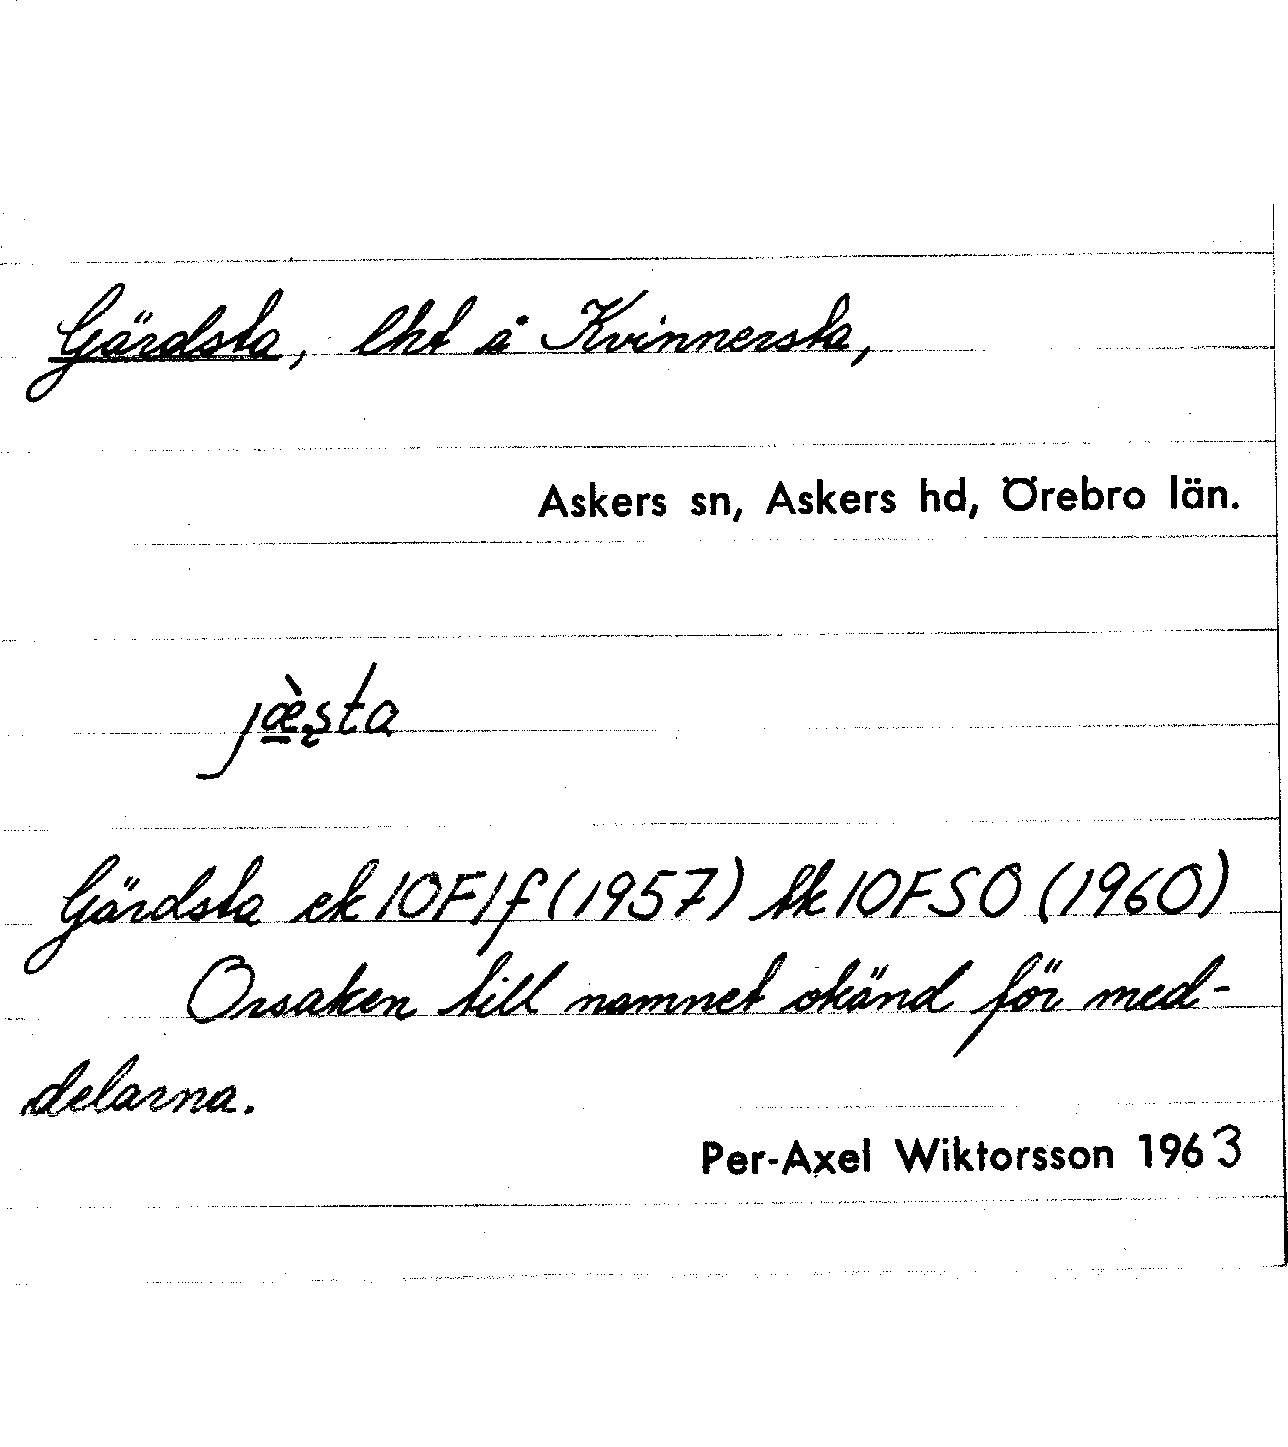 Gärdsta, lht å Kvinnersta,
Askers sn, Askers hd, Örebro län.
jæ̀ʂta
Gärdsta ek 10F1f (1957) tk 10FSO (1960)
Orsaken till namnet okänd för med-
delarna.
Per-Axel Wiktorsson 1963